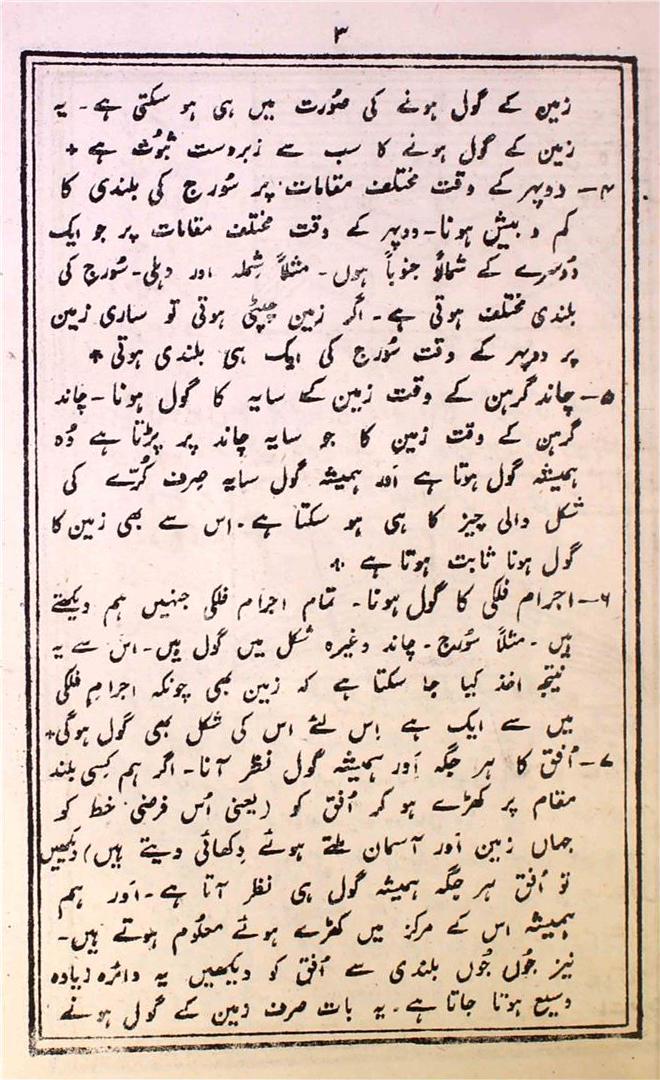 ۳
زمین کے گول ہونے کی صورت میں ہی ہو سکتی ہے۔ یہ
زمین کے گول ہونے کا سب سے زبردست ثبُوت ہے *
۴۔ دوپہر کے وقت مختلف مقامات پر سُورج کی بلندی کا
کم و بیش ہونا۔ دوپہر کے وقت مختلف مقامات پر جو ایک
دُوسرے کے شمالاً جنوباً ہوں۔ مثلاً شِملہ اور دہلی۔ سُورج کی
بلندی مختلف ہوتی ہے۔ اگر زمین چپٹی ہوتی تو ساری زمین
پر دوپہر کے وقت سُورج کی ایک ہی بلندی ہوتی *
۵۔ چاند گرہن کے وقت زمین کے سایہ کا گول ہونا۔ چاند
گرہن کے وقت زمین کا جو سایہ چاند پر پڑتا ہے وُہ
ہمیشہ گول ہوتا ہے اَور ہمیشہ گول سایہ صِرف کُرّے کی
شکل والی چیز کا ہی ہو سکتا ہے۔ اس سے بھی زمین کا
گول ہونا ثابت ہوتا ہے *
۶۔ اجرام فلکی کا گول ہونا۔ تمام اجرام فلکی جنہیں ہم دیکھتے
ہیں۔ مثلاً سُورج۔ چاند وغیرہ شکل میں گول ہیں۔ اس سے یہ
نتیجہ اخذ کیا جا سکتا ہے کہ زمین بھی چونکہ اجرامِ فلکی
میں سے ایک ہے اِس لئے اس کی شکل بھی گول ہوگی *
۷۔ اُفق کا ہر جگہ اَور ہمیشہ گول نظر آنا۔ اگر ہم کِسی بلند
مقام پر کھڑے ہو کر اُفق کو (یعنی اُس فرضی خط کو
جہاں زمین اَور آسمان ملتے ہوئے دِکھائی دیتے ہیں) دیکھیں
تو اُفق ہر جگہ ہمیشہ گول ہی نظر آتا ہے۔ اَور ہم
ہمیشہ اس کے مرکز میں کھڑے ہوئے معلُوم ہوتے ہیں۔
نیز جُوں جُوں بلندی سے اُفق کو دیکھیں یہ دائرہ زیادہ
وسیع ہوتا جاتا ہے۔ یہ بات صرف زمین کے گول ہونے